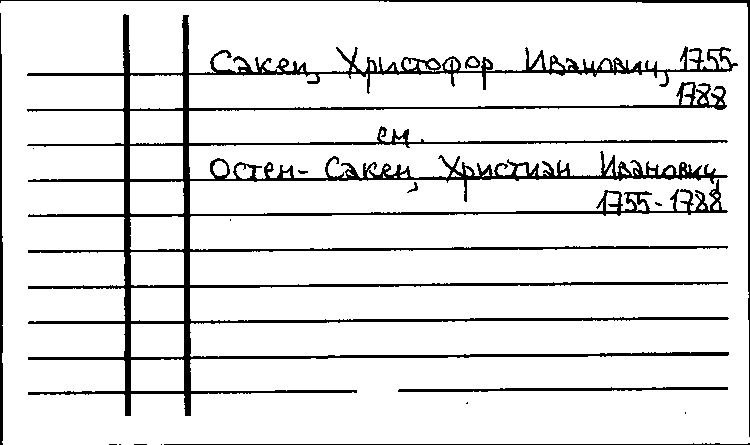 Сакен, Христофор Иванович, 1755-
1788
см.
Остен-Сакен, Христиан Иванович,
1755-1788